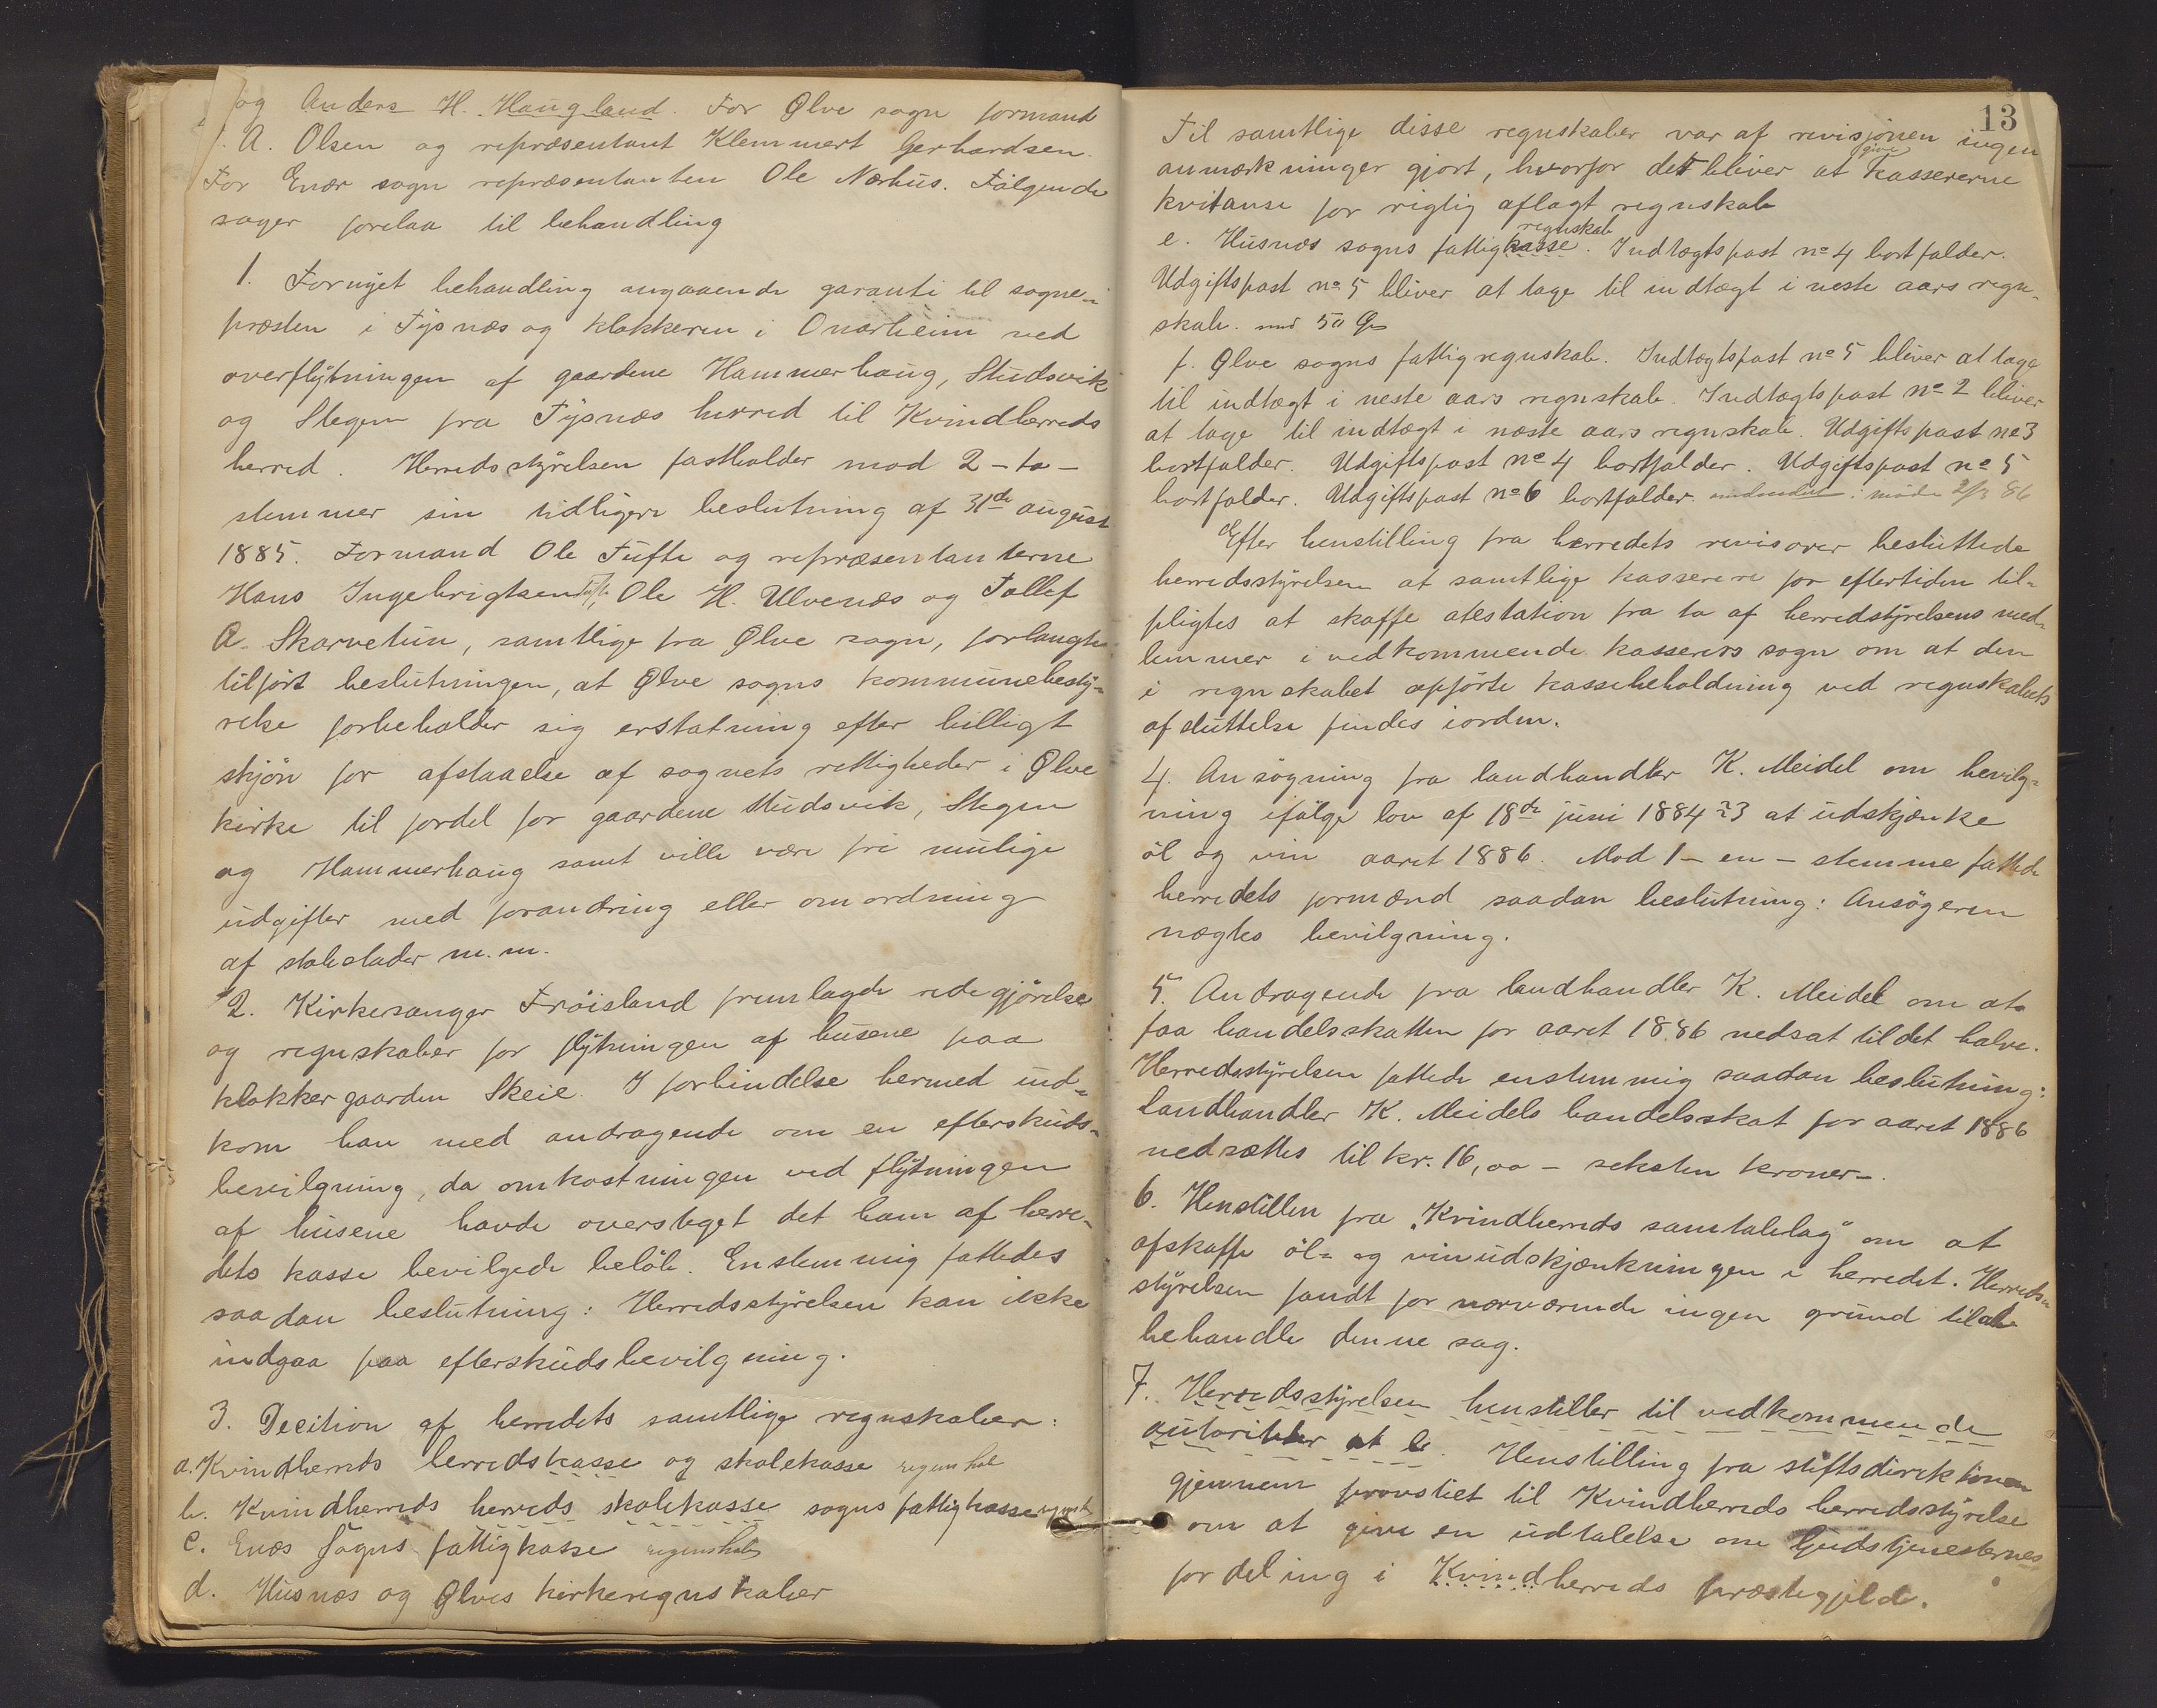 og Anders H. Haugland. For Ølve sogn formand
A. Olsen og repræsentant Klemmert Gerhardsen.
For Enæs sogn repræsentanten Ole Nærhus. Følgende
sager forelaa til behandling
1. Fornyet behandling angaaende garanti til sogne-
præsten i Tysnæs og klokkeren i Onarheim ved
overflytningen af gaardene Hammerhaug, Studsvik
og Stegen fra Tysnæs herred til Kvindherreds
herred. Herredsstyrelsen fastholder mod 2 - to -
stemmer sin tidligere beslutning af 31de august
1885. Formand Ole Tufte og repræsentanterne
Hans Ingebrigtsen Tufte, Ole H. Ulvenæs og Tollef
A. Skarvetun, samtlige fra Ølve sogn, forlangte
tilført beslutningen, at Ølve sogns kommunebesty-
relse forbeholder sig erstatning efter billigt
skjøn for afstaaelse af sognets rettigheder i Ølve
kirke til fordel for gaardene Studsvik, Stegen
og Hammerhaug samt ville være fri mulige
udgifter med forandring eller omordning
af stolestader m. m.
2. Kirkesanger Frøisland fremlagde redegjørelse
og regnskaber for flytningen af husene paa
klokkergaarden Skeie. I forbindelse hermed ind-
kom han med andragende om en efterskuds-
bevilgning, da omkostningen ved flytningen
af husene havde oversteget det ham af herre-
dets kasse bevilgede beløb. Enstemmig fattedes
saadan beslutning: Herredsstyrelsen kan ikke
indgaa paa efterskudsbevilgning.
3. Decition af herredets samtlige regnskaber:
a. Kvindherreds herredskasse og skolekasse regnskab
b. Kvindherreds herreds skolekasse sogns fattigkasse regnsk
c. Enæs sogns fattigkasse regnskab
d. Husnæs og Ølves kirkeregnskaber
13
Til samtlige disse regnskaber var af revisjonen ingen
anmærkninger gjort, hvorfor det bliver at give kassererne
kvitanse for rigtig aflagt regnskab
e. Husnæs sogns fattigkasse regnskab. Indtægtspost no 4 bortfalder.
Udgiftspost no 5 bliver at tage til indtægt i neste aars regn-
skab. med 50 Øre
f. Ølve sogns fattigregnskab. Indtægtspost no 5 bliver at tage
til indtægt i neste aars regnskab. Indtægtspost no 2 bliver
at tage til indtægt i næste aars regnskab. Udgiftspost no 3
bortfalder. Udgiftspost no 4 bortfalder. Udgiftspost no 5
bortfalder. Udgiftspost no 6 bortfalder. i møde 2/3 86
Efter henstilling fra herredets revisorer besluttede
herredsstyrelsen at samtlige kasserere for eftertiden til-
pligtes at skaffe atestation fra to af herredstyrelsens med-
lemmer i vedkommende kasserers sogn om at den
i regnskabet opførte kassebeholdning ved regnskabets
afsluttelse findes iorden.
4. Ansøgning fra landhandler K. Meidel om bevilg-
ning ifølge lov af 18de juni 1884 § 3 at udskjænke
øl og vin aaret 1886. Mod 1 - en - stemme fattede
herredets formænd saadan beslutning: Ansøgeren
nægtes bevilgning.
5. Andragende fra landhandler K. Meidel om at
faa handelsskatten for aaret 1886 nedsat til det halve.
Herredsstyrelsen fattede enstemmig saadan beslutning:
Landhandler K. Meidels handelsskat for aaret 1886
nedsættes til kr. 16,00 - seksten kroner -.
6. Henstillen fra "Kvindherreds samtalelag" om at
afskaffe øl- og vinudskjænkningen i herredet. Herreds-
styrelsen fandt for nærværende ingen grund til at
behandle denne sag.
7. Herredsstyrelsen henstiller til vedkommende
autoriteter at b. Henstilling fra stiftsdirektionen
gjennem provstiet til Kvindherreds herredsstyrelse
om at give en udtalelse om Gudstjenesternes
fordeling i Kvindherreds præstegjeld.